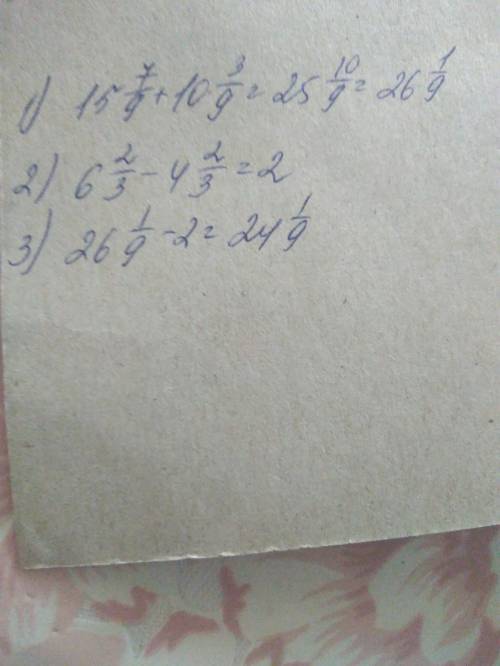 1) 15 7/9 + 10 3/9 = 25 10/9 = 26 1/9
2) 6 2/3 - 4 2/3 = 2
3) 26 1/9 - 2 = 24 1/9